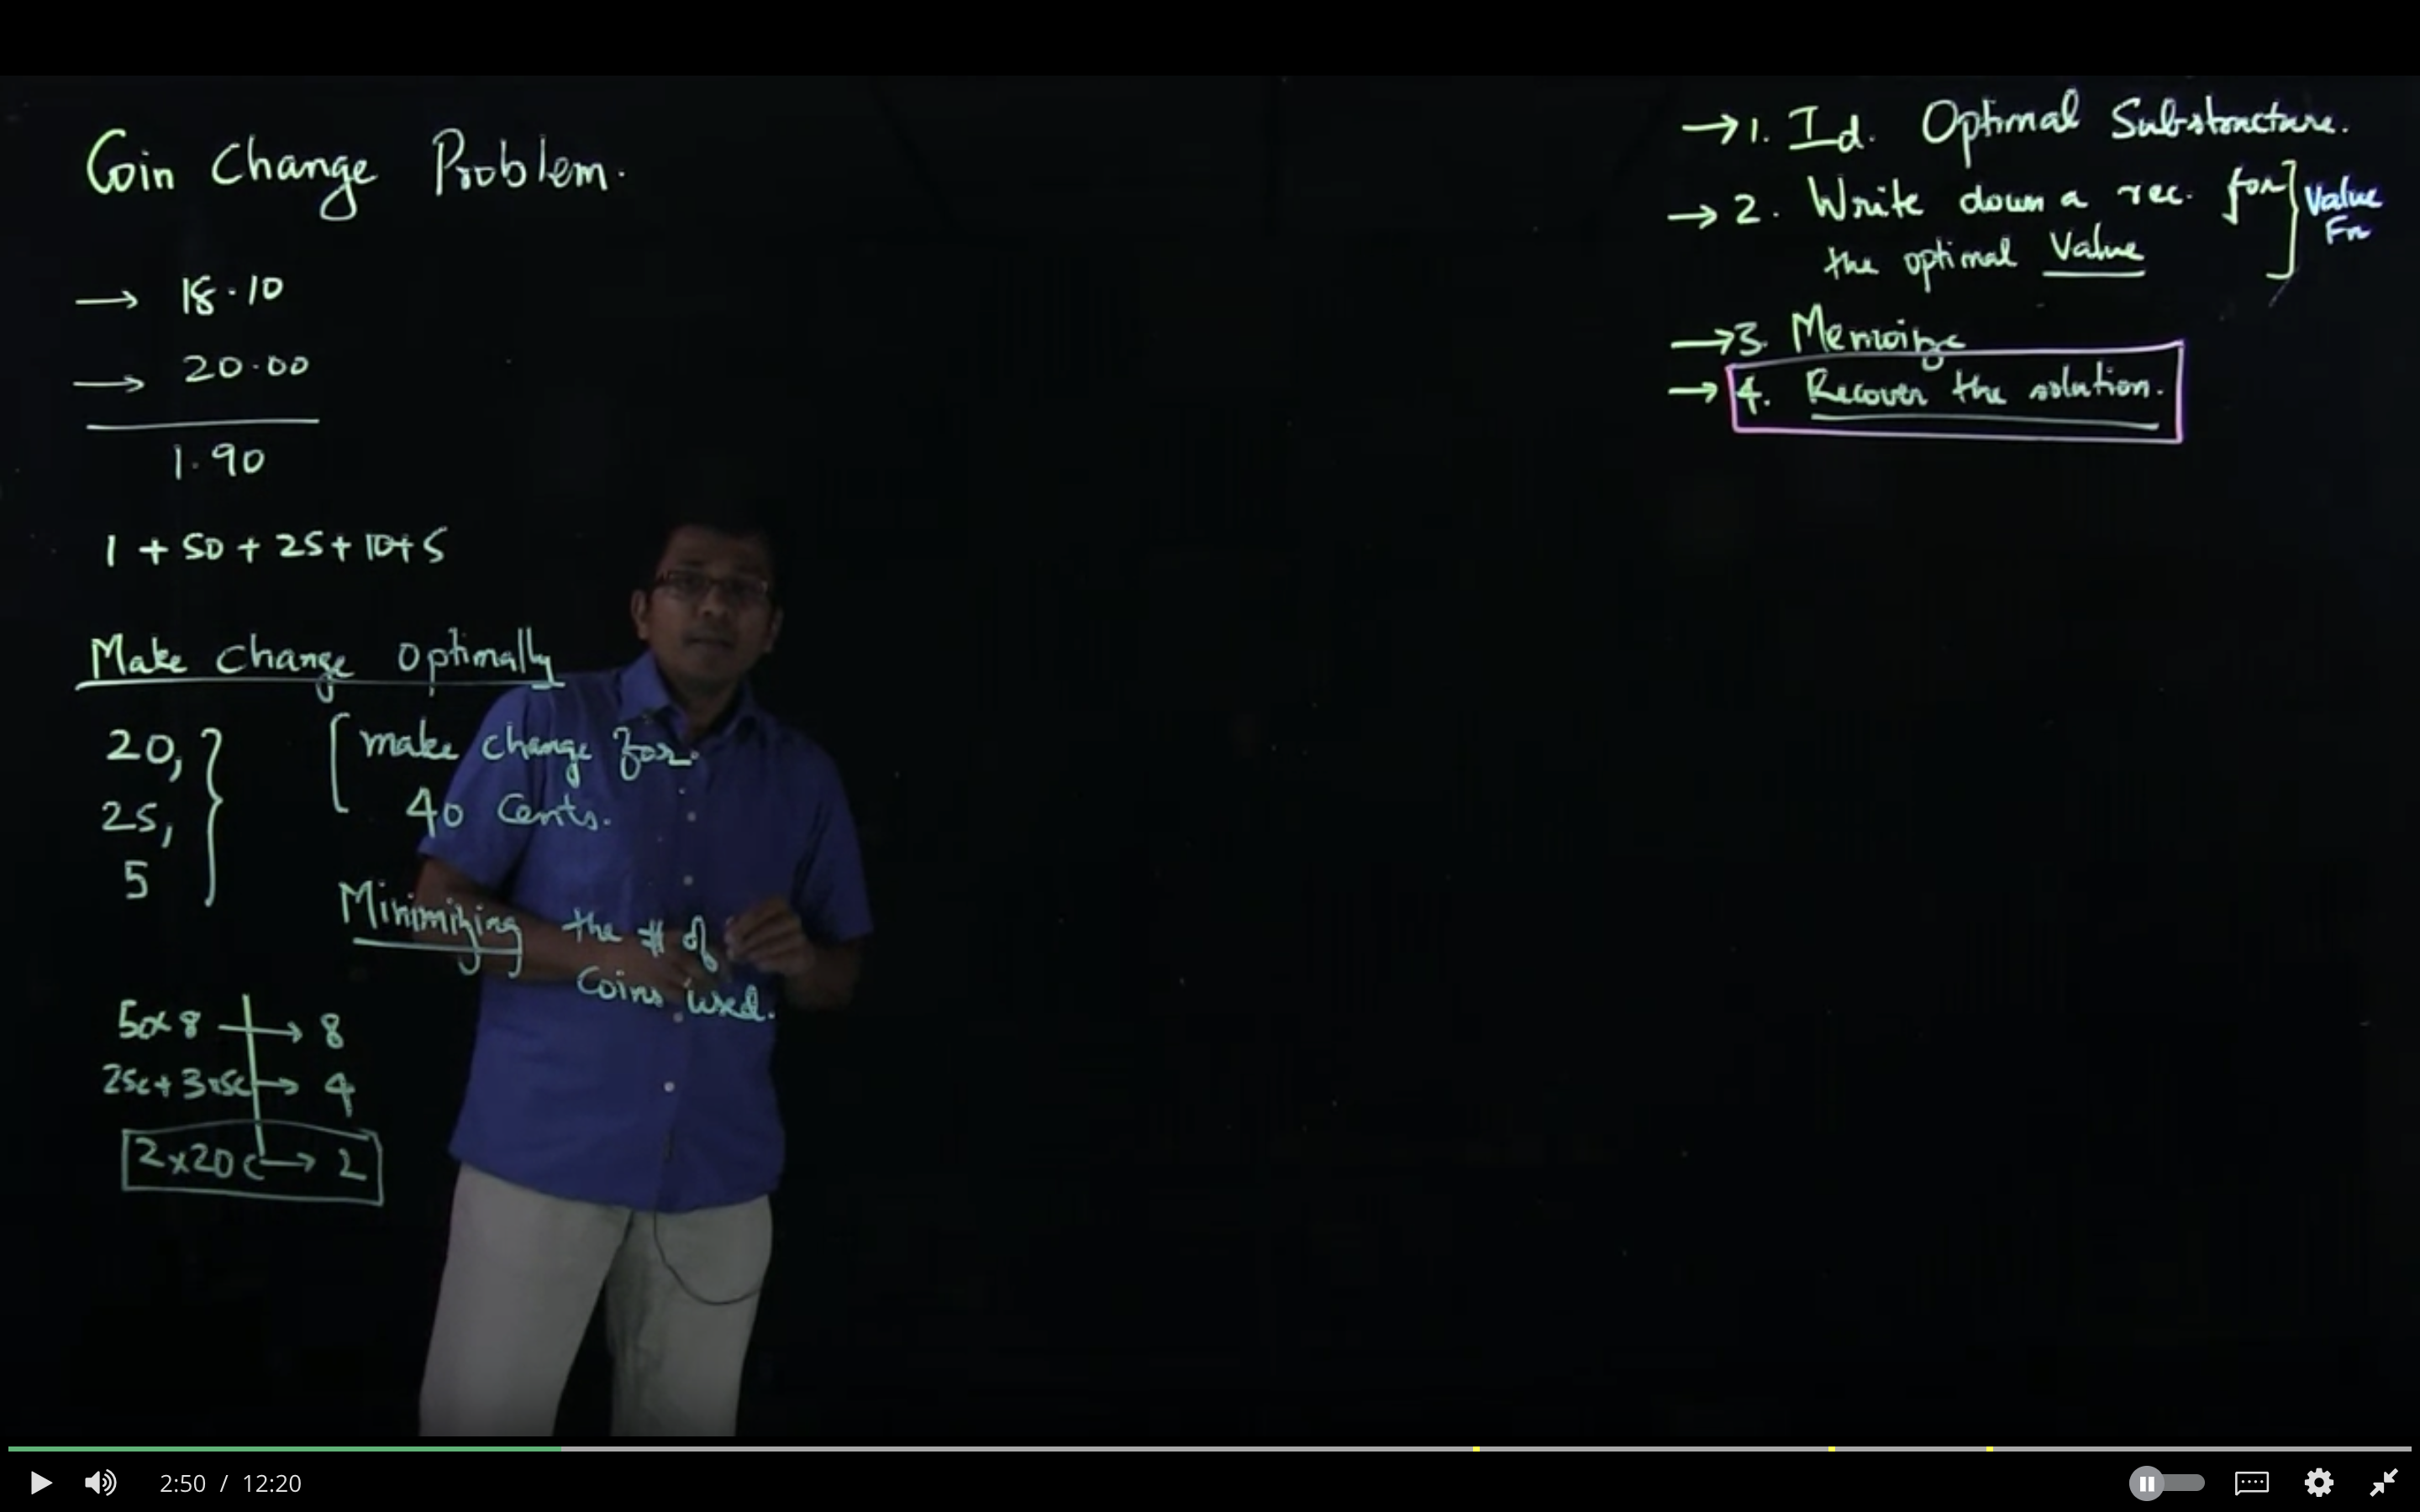 Coin Change Problem.
→ 18.10
→ 20.00
1.90
1 + 50 + 25 + 10 + 5
Make change optimally
20,
25,
5
make change for
40 cents.
Minimizing the # of
Coins used.
5c x 8 → 8
25c + 3x5c → 4
2x20c → 2
→ 1. Id. Optimal Substructure.
→ 2. Write down a rec. for
the optimal Value
Value
Fn
→ 3. Memoize
→ 4. Recover the solution.
2:50 / 12:20